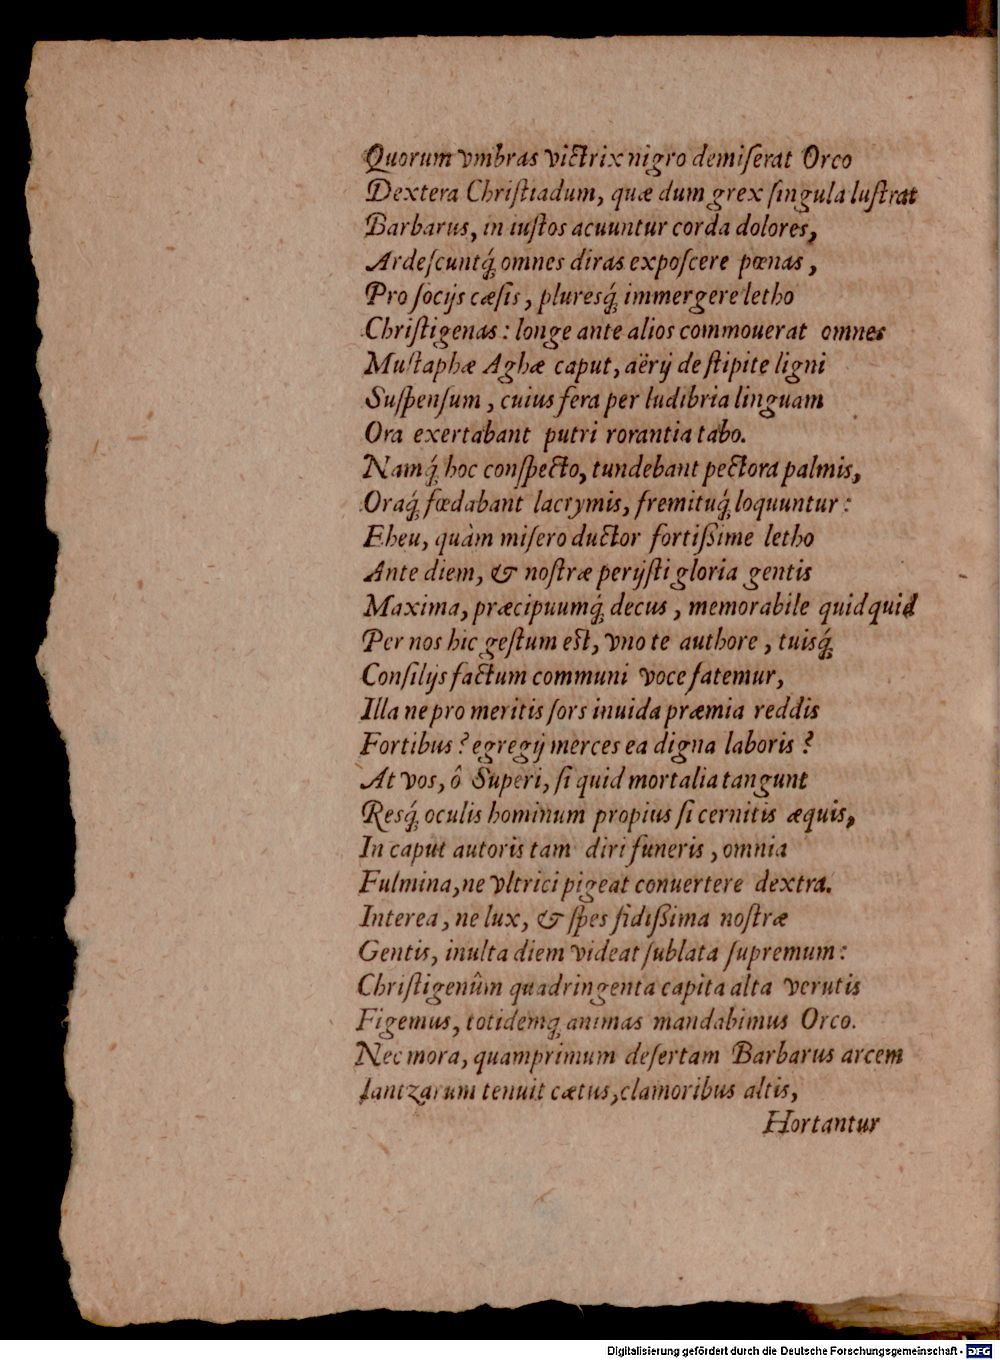 Quorum vmbras victrix nigro demiserat Orco
Dextera Christiadum, quæ dum grex singula lustrat
Barbarus, in iustos acuuntur corda dolores,
Ardescuntq́; omnes diras exposcere pœnas,
Pro socijs cæsis, pluresq́; immergere letho
Christigenas: longe ante alios commouerat omnes
Mustaphæ Aghæ caput, aërij de stipite ligni
Suspensum, cuius fera per ludibria linguam
Ora exertabant putri rorantia tabo.
Namq́; hoc conspecto, tundebant pectora palmis,
Oraq́; fœdabant lacrymis, fremituq́; loquuntur:
Eheu, quàm misero ductor fortißime letho
Ante diem, & nostræ perijsti gloria gentis
Maxima, præcipuumq́; decus, memorabile quidquid
Per nos hic gestum est, vno te authore, tuisq́;
Consilijs factum communi voce fatemur,
Illa ne pro meritis sors inuida præmia reddis
Fortibus? egregij merces ea digna laboris?
At vos, ô Superi, si quid mortalia tangunt
Resq́; oculis hominum propius si cernitis æquis,
In caput autoris tam diri funeris, omnia
Fulmina, ne vltrici pigeat conuertere dextra.
Interea, ne lux, & spes fidißima nostræ
Gentis, inulta diem videat sublata supremum:
Christigenûm quadringenta capita alta verutis
Figemus, totidemq; animas mandabimus Orco.
Nec mora, quamprimum desertam Barbarus arcem
Iantzarum tenuit cætus, clamoribus altis,
Hortantur
Digitalisierung gefördert durch die Deutsche Forschungsgemeinschaft - DFG